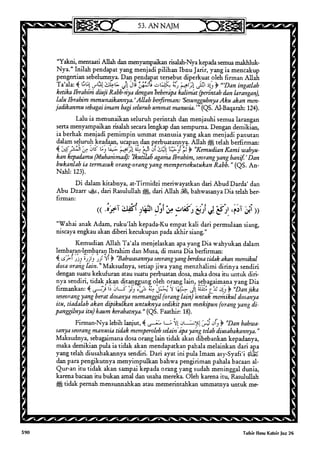 53. AN NAJM
"Yakni, mentaati Allah dan menyampaikan risalah-Nya kepada semua makhluk-
Nya." Inilah pendapat yang menjadi pilihan Ibnu Jarir, yang ia mencakup
pengertian sebelumnya. Dan pendapat tersebut diperkuat oleh firman Allah
Ta'ala: ﴿ وَإِذِ ابْتَلَى إِبْرَاهِيمَ رَبُّهُ بِكَلِمَاتٍ فَأَتَمَّهُنَّ قَالَ إِنِّي جَاعِلُكَ لِلنَّاسِ إِمَامًا ﴾ "Dan ingatlah
ketika Ibrahim diuji Rabb-nya dengan beberapa kalimat (perintah dan larangan),
lalu Ibrahim menunaikannya.' Allah berfirman: 'Sesungguhnya Aku akan men-
jadikanmu sebagai imam bagi seluruh ummat manusia.'" (QS. Al-Baqarah: 124).
Lalu ia menunaikan seluruh perintah dan menjauhi semua larangan
serta menyampaikan risalah secara lengkap dan sempurna. Dengan demikian,
ia berhak menjadi pemimpin ummat manusia yang akan menjadi panutan
dalam seluruh keadaan, ucapan dan perbuatannya. Allah ﷻ telah berfirman:
﴿ ثُمَّ أَوْحَيْنَا إِلَيْكَ أَنِ اتَّبِعْ مِلَّةَ إِبْرَاهِيمَ حَنِيفًا وَمَا كَانَ مِنَ الْمُشْرِكِينَ ﴾ "Kemudian Kami wahyu-
kan kepadamu (Muhammad): 'Ikutilah agama Ibrahim, seorang yang hanif.' Dan
bukanlah ia termasuk orang-orang yang mempersekutukan Rabb." (QS. An-
Nahl: 123).
Di dalam kitabnya, at-Tirmidzi meriwayatkan dari Abud Darda' dan
Abu Dzarr, dari Rasulullah ﷺ, dari Allah ﷻ, bahwasanya Dia telah ber-
firman:
(( ابْنَ آدَمَ، ارْكَعْ لِي أَرْبَعَ رَكَعَاتٍ مِنْ أَوَّلِ النَّهَارِ أَكْفِكَ آخِرَهُ. ))
"Wahai anak Adam, ruku'lah kepada-Ku empat kali dari permulaan siang,
niscaya engkau akan diberi kecukupan pada akhir siang."
Kemudian Allah Ta'ala menjelaskan apa yang Dia wahyukan dalam
lembaran-lembaran Ibrahim dan Musa, di mana Dia berfirman:
﴿ أَلَّا تَزِرُ وَازِرَةٌ وِزْرَ أُخْرَى ﴾ "Bahwasannya seorang yang berdosa tidak akan memikul
dosa orang lain." Maksudnya, setiap jiwa yang menzhalimi dirinya sendiri
dengan suatu kekufuran atau suatu perbuatan dosa, maka dosa itu untuk diri-
nya sendiri, tidak akan ditanggung oleh orang lain, sebagaimana yang Dia
firmankan: ﴿ وَإِنْ تَدْعُ مُثْقَلَةٌ إِلَى حِمْلِهَا لَا يُحْمَلْ مِنْهُ شَيْءٌ وَلَوْ كَانَ ذَا قُرْبَى ﴾ "Dan jika
seseorang yang berat dosanya memanggil (orang lain) untuk memikul dosanya
itu, tiadalah akan dipikulkan untuknya sedikit pun meskipun (orang yang di-
panggilnya itu) kaum kerabatnya." (QS. Faathir: 18).
Firman-Nya lebih lanjut, ﴿ وَأَنْ لَيْسَ لِلْإِنْسَانِ إِلَّا مَا سَعَى ﴾ "Dan bahwa-
sanya seorang manusia tidak memperoleh selain apa yang telah diusahakannya."
Maksudnya, sebagaimana dosa orang lain tidak akan dibebankan kepadanya,
maka demikian pula ia tidak akan mendapatkan pahala melainkan dari apa
yang telah diusahakannya sendiri. Dari ayat ini pula Imam asy-Syafi'i
dan para pengikutnya menyimpulkan bahwa pengiriman pahala bacaan al-
Qur-an itu tidak akan sampai kepada orang yang sudah meninggal dunia,
karena bacaan itu bukan amal dan usaha mereka. Oleh karena itu, Rasulullah
ﷺ tidak pernah mensunnahkan atau memerintahkan ummatnya untuk me-
590
Tafsir Ibnu Katsir Juz 26